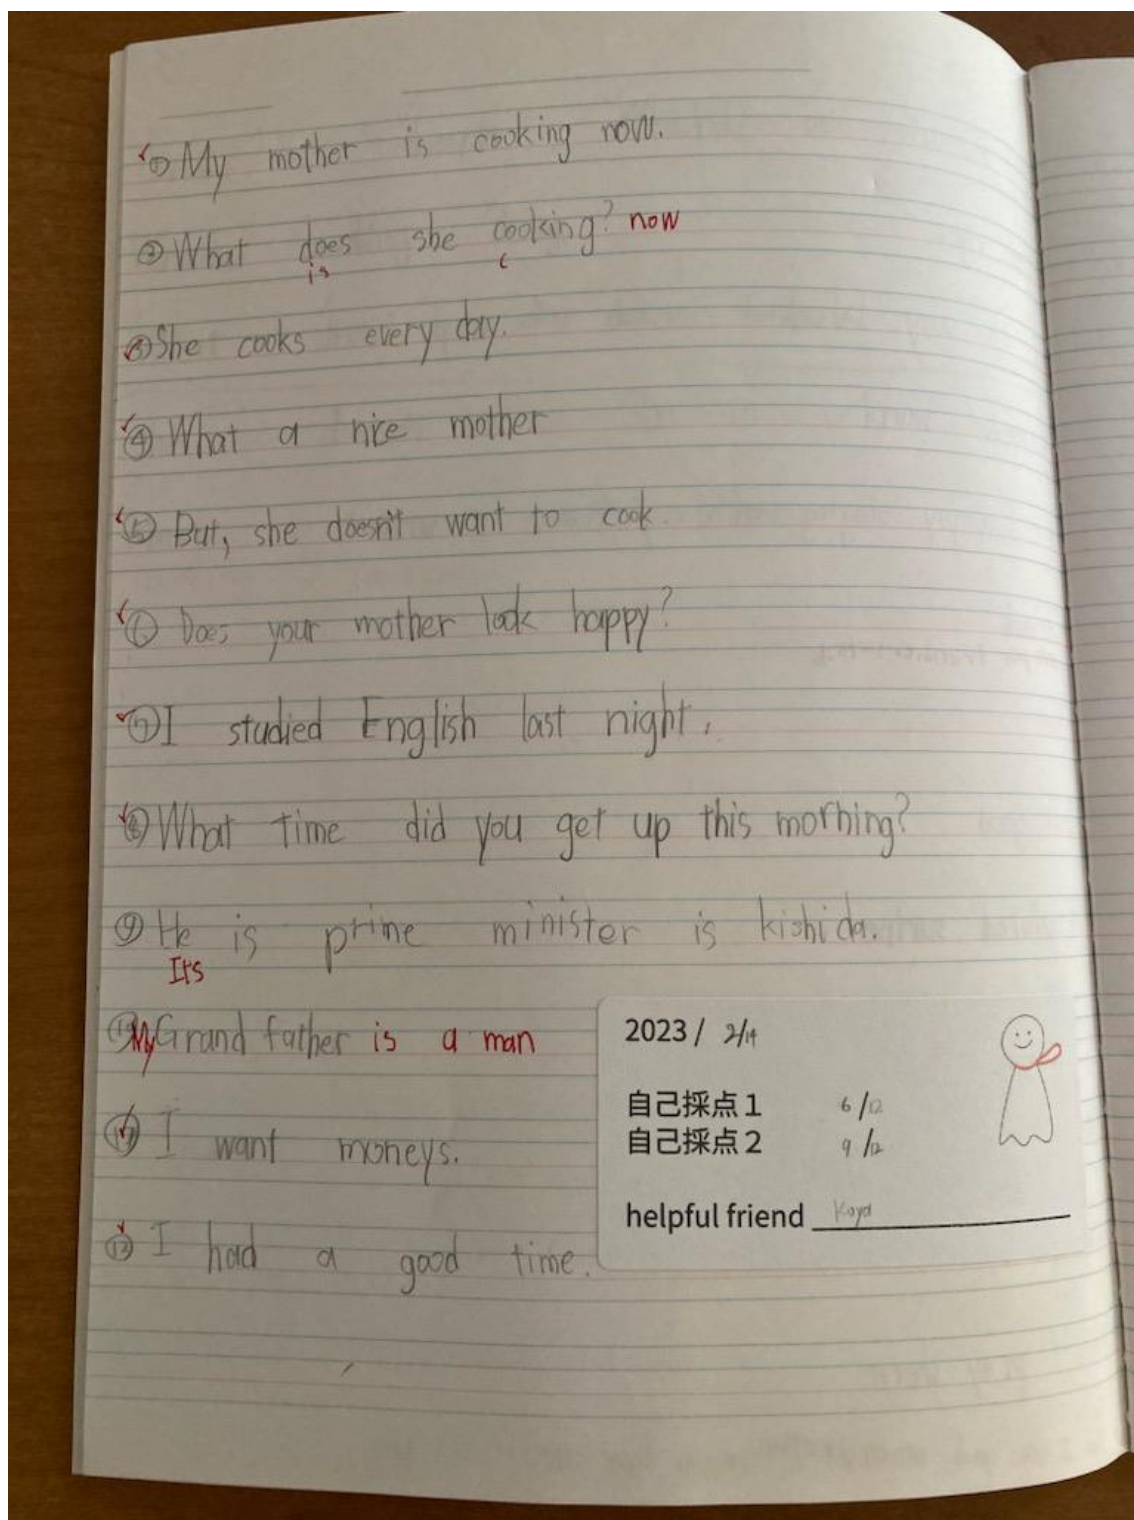 ① My mother is cooking now.
② What does she cooking? now
is
③ She cooks every day.
④ What a nice mother
⑤ But, she doesn't want to cook
⑥ Does your mother look happy?
⑦ I studied English last night.
⑧ What time did you get up this morning?
⑨ He is prime minister is kishida.
It's
⑩ My Grand father is a man
⑪ I want moneys.
⑫ I had a good time.
2023 / 2/14
自己採点1 6/12
自己採点2 9/12
helpful friend Koya